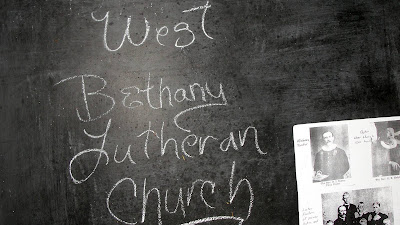 West
Bethany
Lutheran
Church